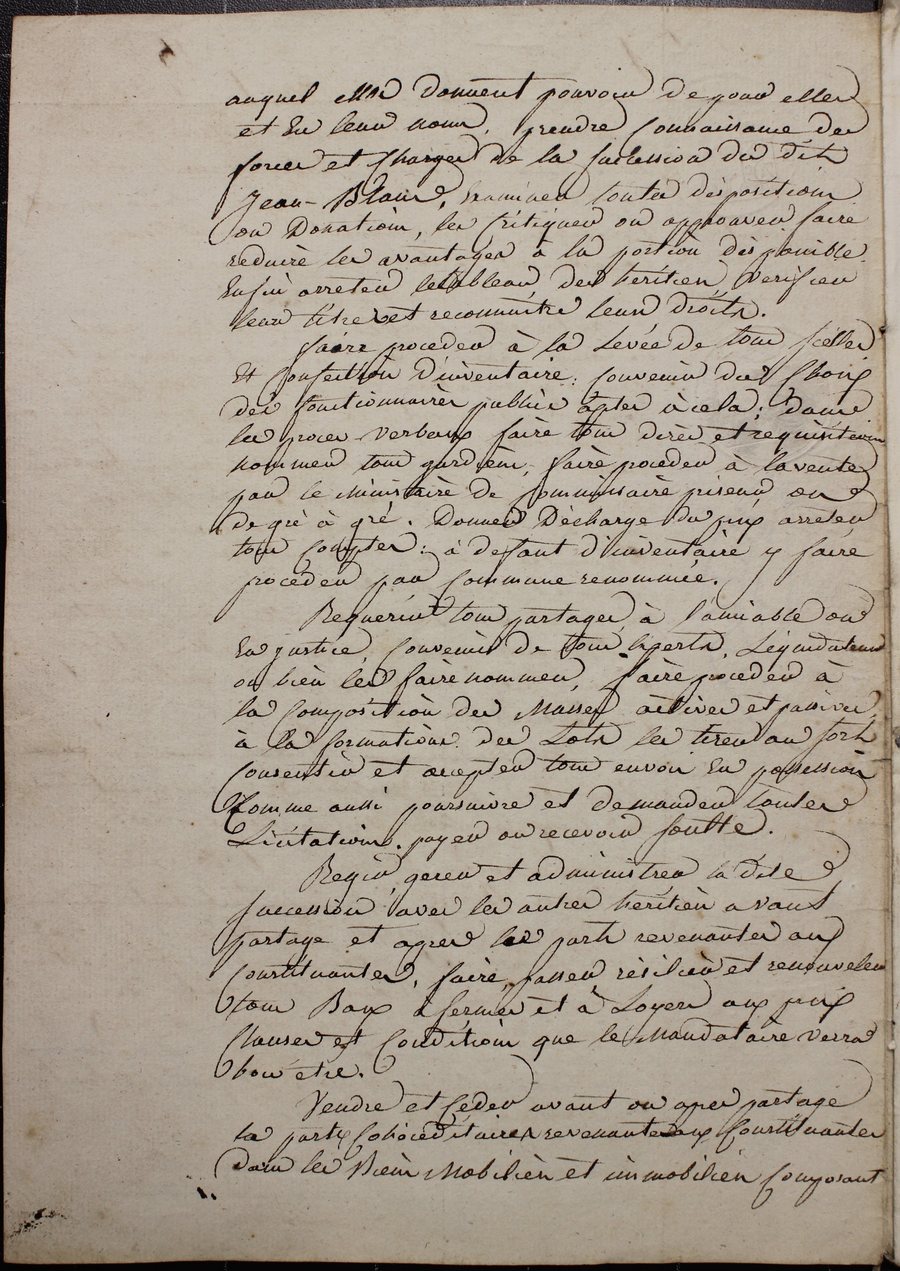 auquel elles donnent pouvoir de pour elles
et en leur nom, prendre connaissance des
forces et charges de la succession du dit
Jean-Blaise, Examiner toutes dispositions
ou Donations, les critiquer ou approuver, faire
réduire les avantages à la portion disponible.
Enfin arreter le tableau des héritiers, verifier
leurs titres et reconnaitre leurs droits.
faire proceder à la Levée de tous scellés
et confection d'inventaire; convenir du choix
des fonctionnaires publics aptes à cela; dans
les procès verbaux faire tous dires et requisitions
nommer tous gardiens, faire proceder à la vente
par le Ministaire de Commissaire priseur ou
de gré à gré. Donner Décharge du prix arreter
tous comptes; à defaut d'inventaire y faire
procéder par Commune renommée.
Requerir tous partages à l'amiable ou
en justice, convenir de tous Experts, Liquidateurs
ou bien les faire nommer, faire proceder à
la composition des Masses actives et passives
à la formation des Lots les tirer au sort
consentir et accepter tous envois en possession
Comme aussi poursuivre et demander toutes
Licitations, payer ou recevoir soulte.
Regir, gerer et administrer la dite
succession avec les autres héritiers avant
partage et après les parts revenantes aux
Constituantes, faire, passer résilier et renouveler
tous Baux à fermes et à Loyers aux prix
Clauses et Conditions que le Mandataire verra
bon etre.
Vendre et Ceder avant ou après partage
les parts Cohéréditaires revenantes aux Constituantes
dans les Biens Mobiliers et immobiliers composant